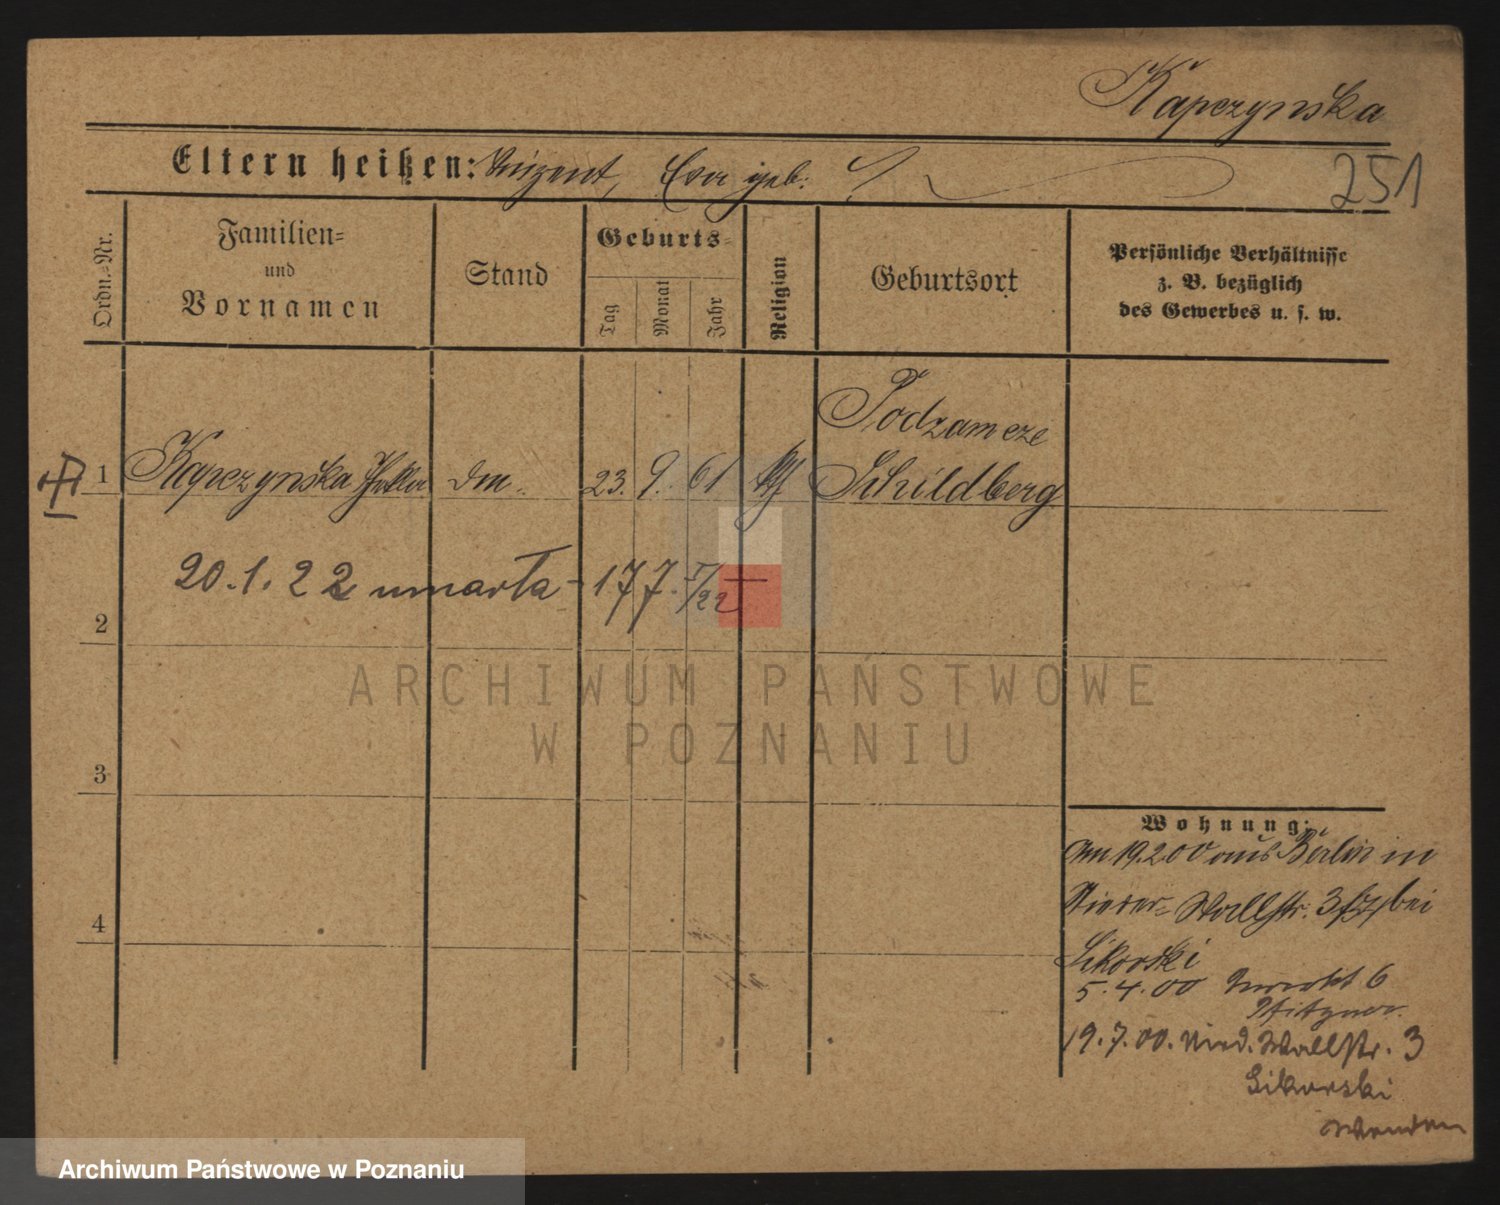 Kapczynska
Eltern heißen: Vinzent, Eva geb: ?
251
Ordn.-Nr.
Familien=
und
Vornamen
Stand
Geburts=
Tag
Monat
Jahr
Religion
Geburtsort
Persönliche Verhältnisse
z. B. bezüglich
des Gewerbes u. s. w.
Podzamcze
1 Kapczynska 23. 9. 61 Schildberg
20.1.22 umarła - 177. I/22
2
3
4
Wohnung:
Am 19.2.00 aus Berlin in
Nieder= Wallstr. 3 bei
Sikorski
5.4.00 6
19.7.00. Nied. Wallstr. 3
Sikorski
Wenden
ARCHIWUM PAŃSTWOWE
W POZNANIU
Archiwum Państwowe w Poznaniu